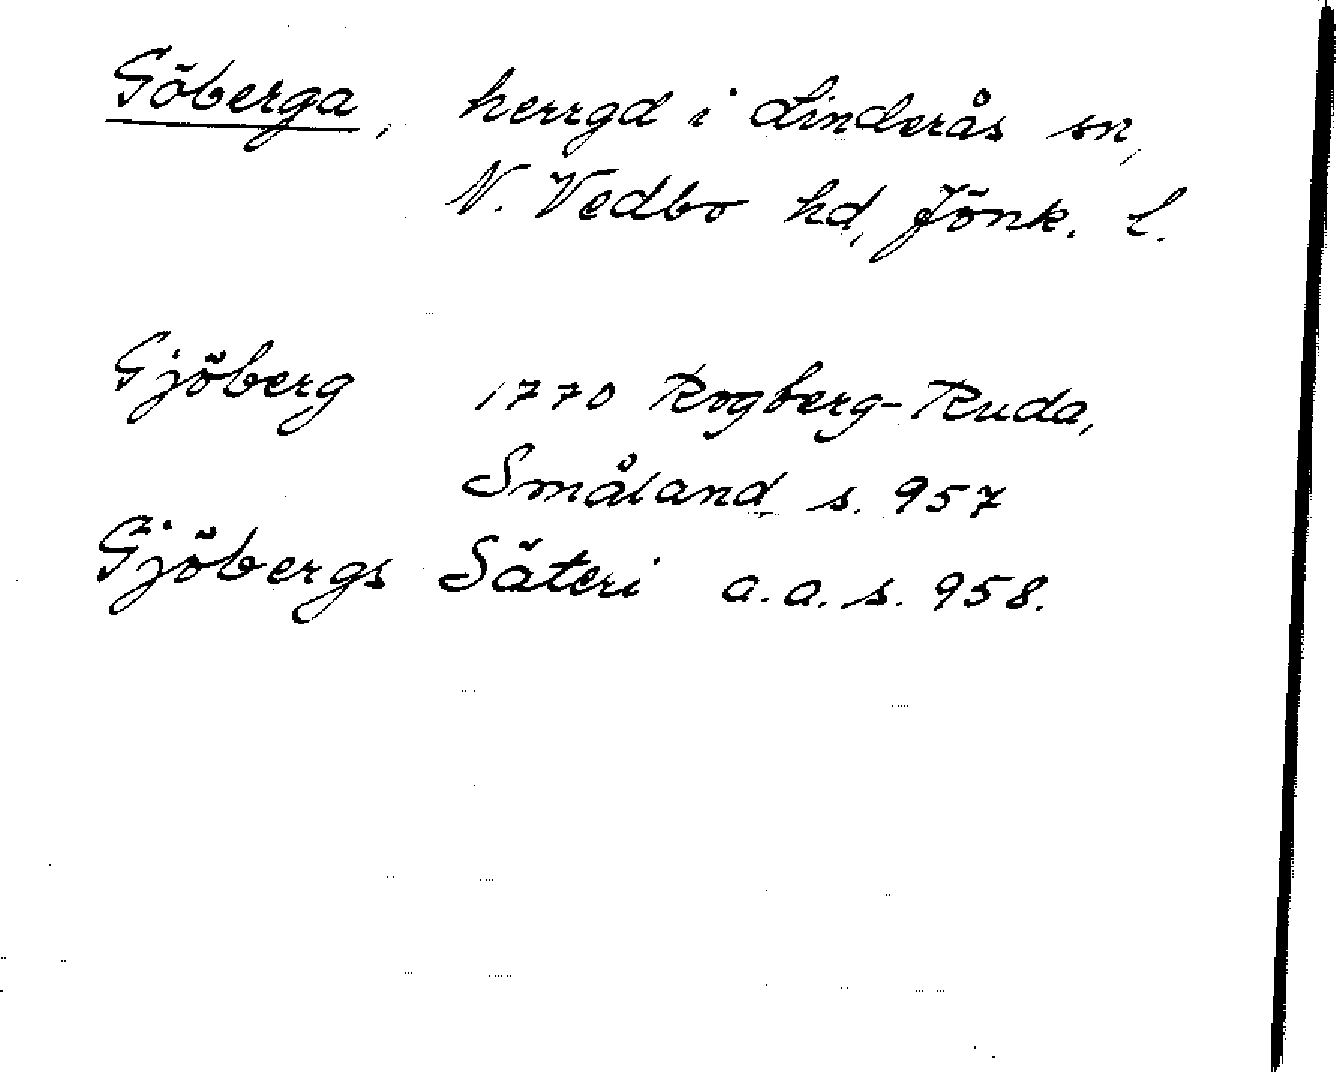 Göberga, herrgd i Linderås sn,
N. Vedbo hd, Jönk. l.
Gjöberg 1770 Rogberg-Ruda,
Småland s. 957
Gjöbergs Säteri a.a. s. 958.